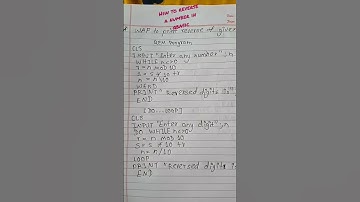 HOW TO REVERSE
A NUMBER IN
QBASIC
WAP to print reverse of given
REM program
CLS
INPUT "Enter any number", n
WHILE n<>0
r = n mod 10
s = s * 10 + r
n = n \ 10
WEND
PRINT "Reversed digits is
END
[DO---LOOP]
CLS
INPUT "Enter any digit", n
DO WHILE n<>0
r = n mod 10
S = s * 10 + r
n = n / 10
LOOP
PRINT "Reversed digits is
END